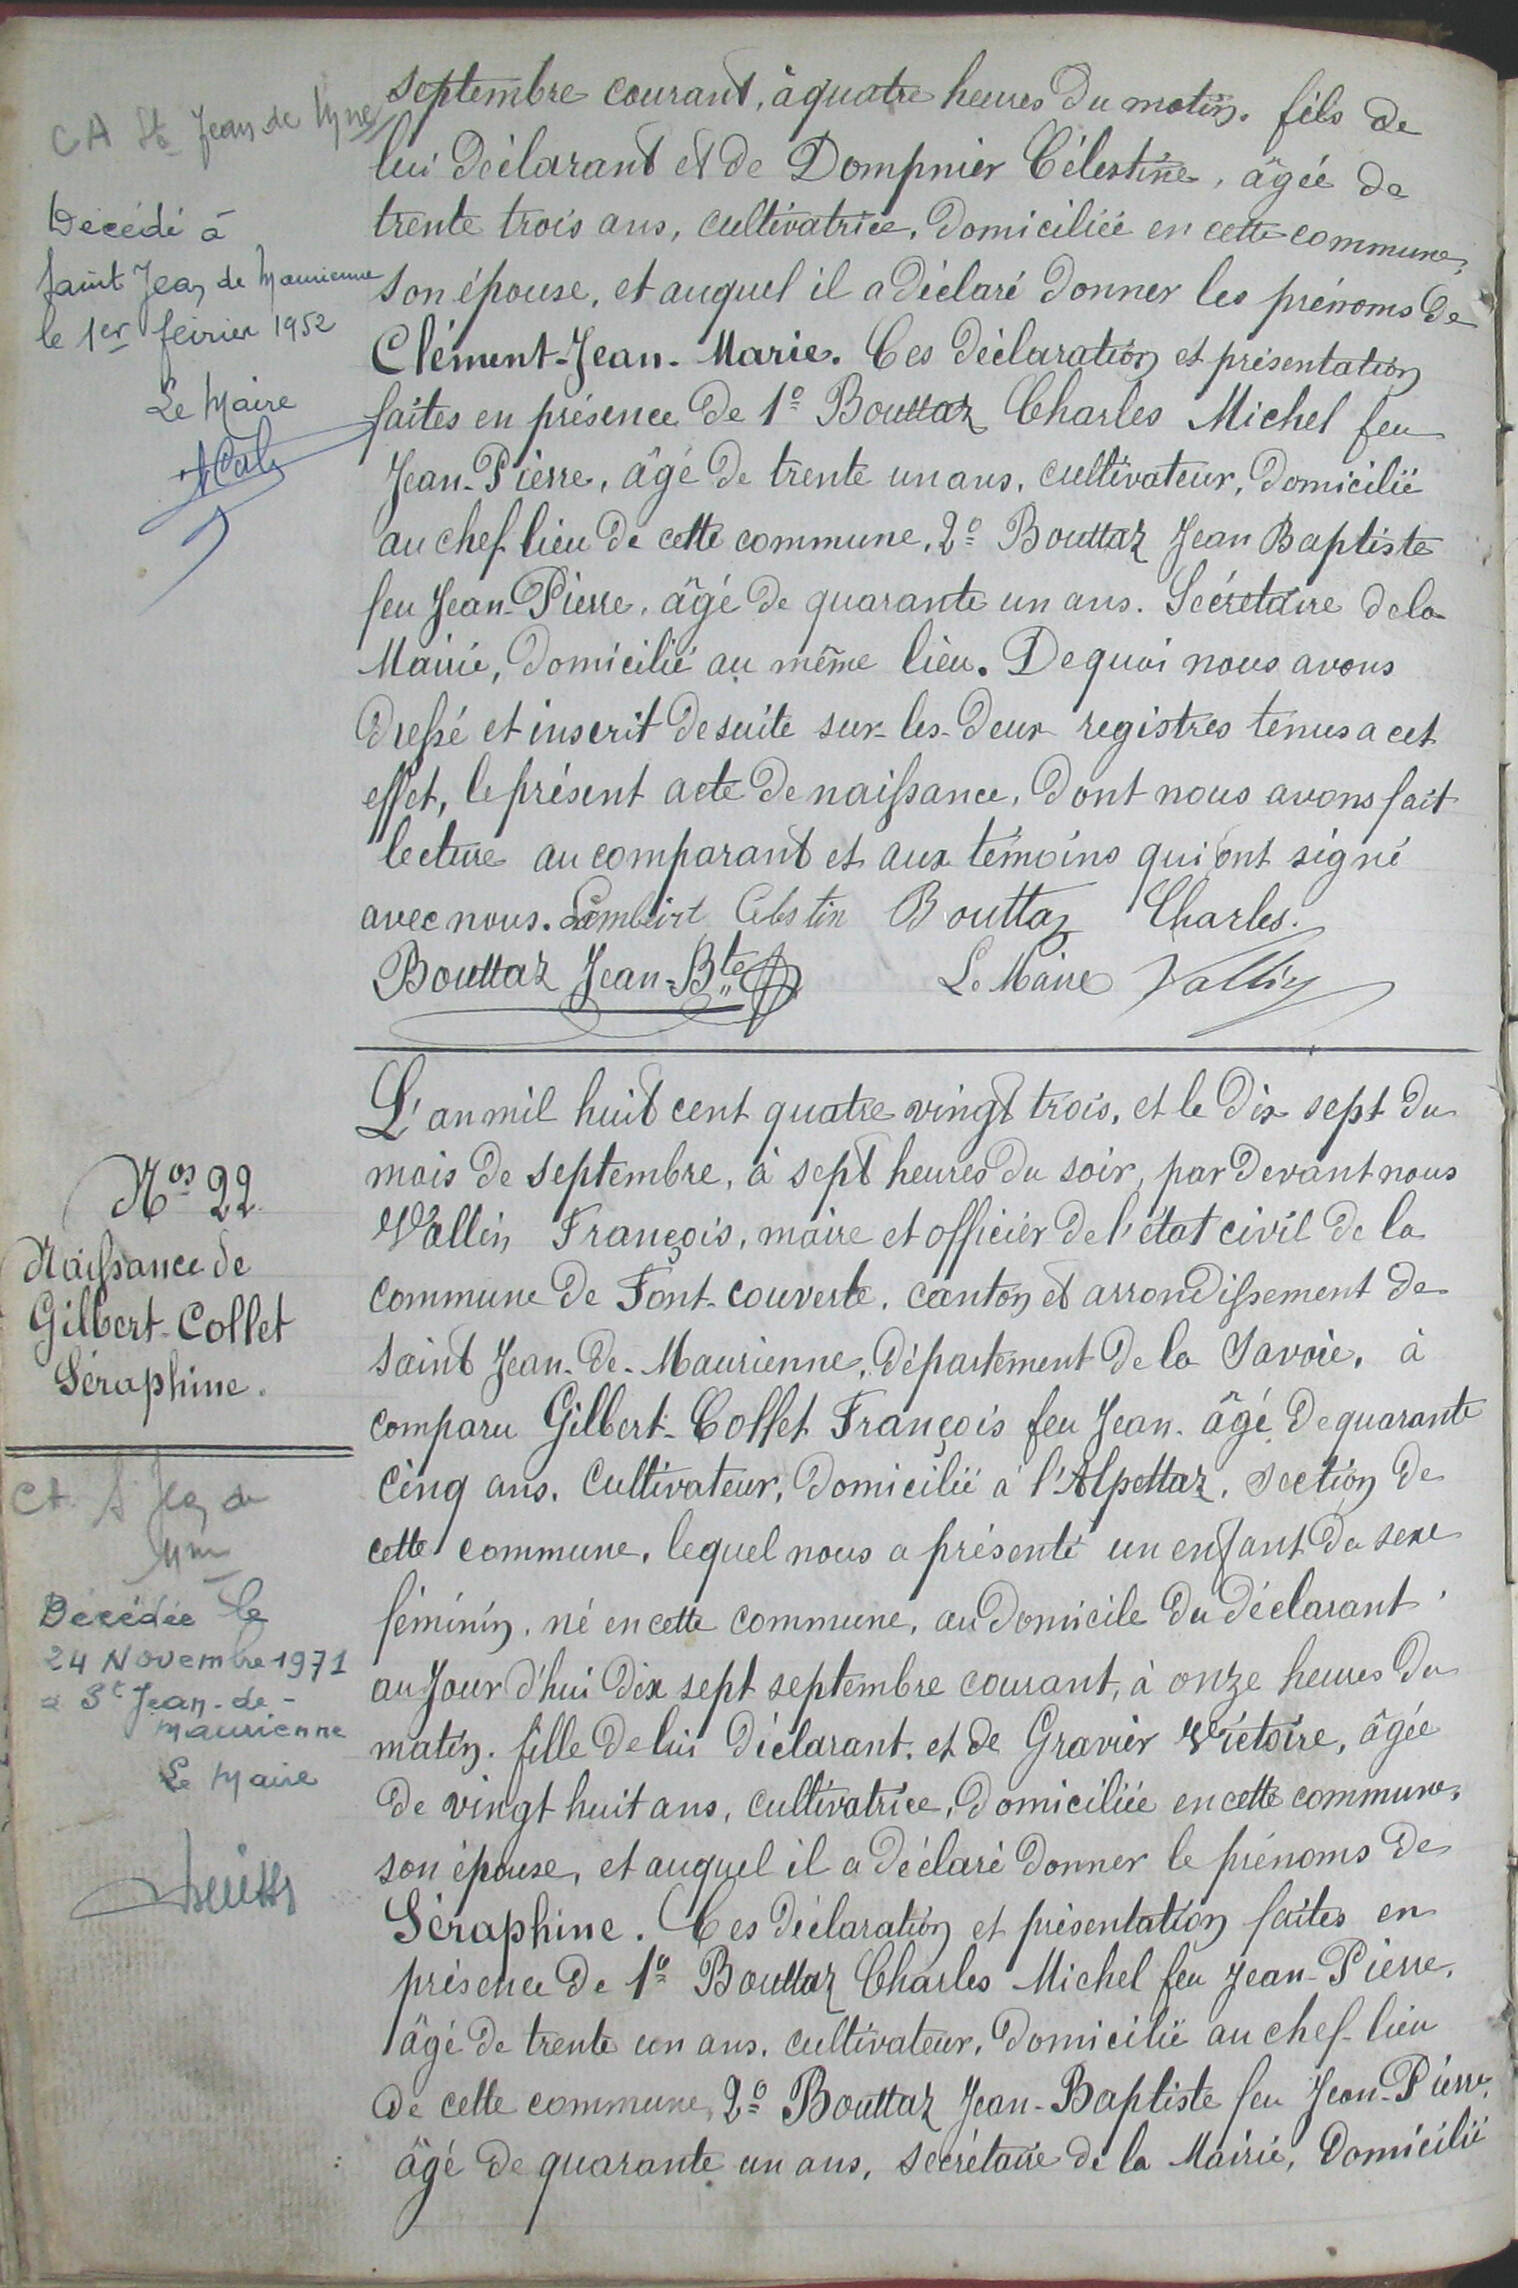 CA St Jean de Mne
Décédé à
Saint Jean de Maurienne
le 1er février 1952
Le Maire
septembre courant, à quatre heures du matin. fils de
lui déclarant et de Dompnier Célestine, âgée de
trente trois ans, cultivatrice, domiciliée en cette commune,
son épouse, et auquel il a déclaré donner les prénoms de
Clément-Jean-Marie. Ces déclaration et présentation
faites en présence de 1º Bouttaz Charles Michel feu
Jean-Pierre, âgé de trente un ans, cultivateur, domicilié
au chef lieu de cette commune, 2º Bouttaz Jean Baptiste
feu Jean-Pierre, âgé de quarante un ans. Secrétaire de la
Mairie, domicilié au même lieu. De quoi nous avons
dressé et inscrit de suite sur les deux registres tenus a cet
effet, le présent acte de naissance, dont nous avons fait
lecture au comparant et aux témoins qui ont signé
avec nous. Célestin Bouttaz Charles.
Bouttaz Jean-Bte Le Maire Vallin
Nos 22
Naissance de
Gilbert-Collet
Séraphine.
Décédée le
24 Novembre 1971
à St Jean-de-
Maurienne
Le Maire
L'an mil huit cent quatre vingt trois, et le dix sept du
mois de septembre, à sept heures du soir, par devant nous
Vallin François, maire et officier de l'état civil de la
commune de Font-couverte, canton et arrondissement de
saint Jean-de-Maurienne, département de la Savoie, à
comparu Gilbert-Collet François feu Jean. âgé de quarante
cinq ans. Cultivateur, domicilié à l'Alpettaz, section de
cette commune, lequel nous a présenté un enfant du sexe
féminin, né en cette commune, au domicile du déclarant
aujour d'hui dix sept septembre courant, à onze heures du
matin. fille de lui déclarant, et de Gravier Victoire, âgée
de vingt huit ans, cultivatrice, domiciliée en cette commune,
son épouse, et auquel il a déclaré donner le prénoms de
Séraphine. Ces déclaration et présentation faites en
présence de 1º Bouttaz Charles Michel feu Jean-Pierre,
âgé de trente un ans, cultivateur, domicilié au chef-lieu
de cette commune, 2º Bouttaz Jean-Baptiste feu Jean-Pierre,
âgé de quarante un ans, secrétaire de la Mairie, domicilié